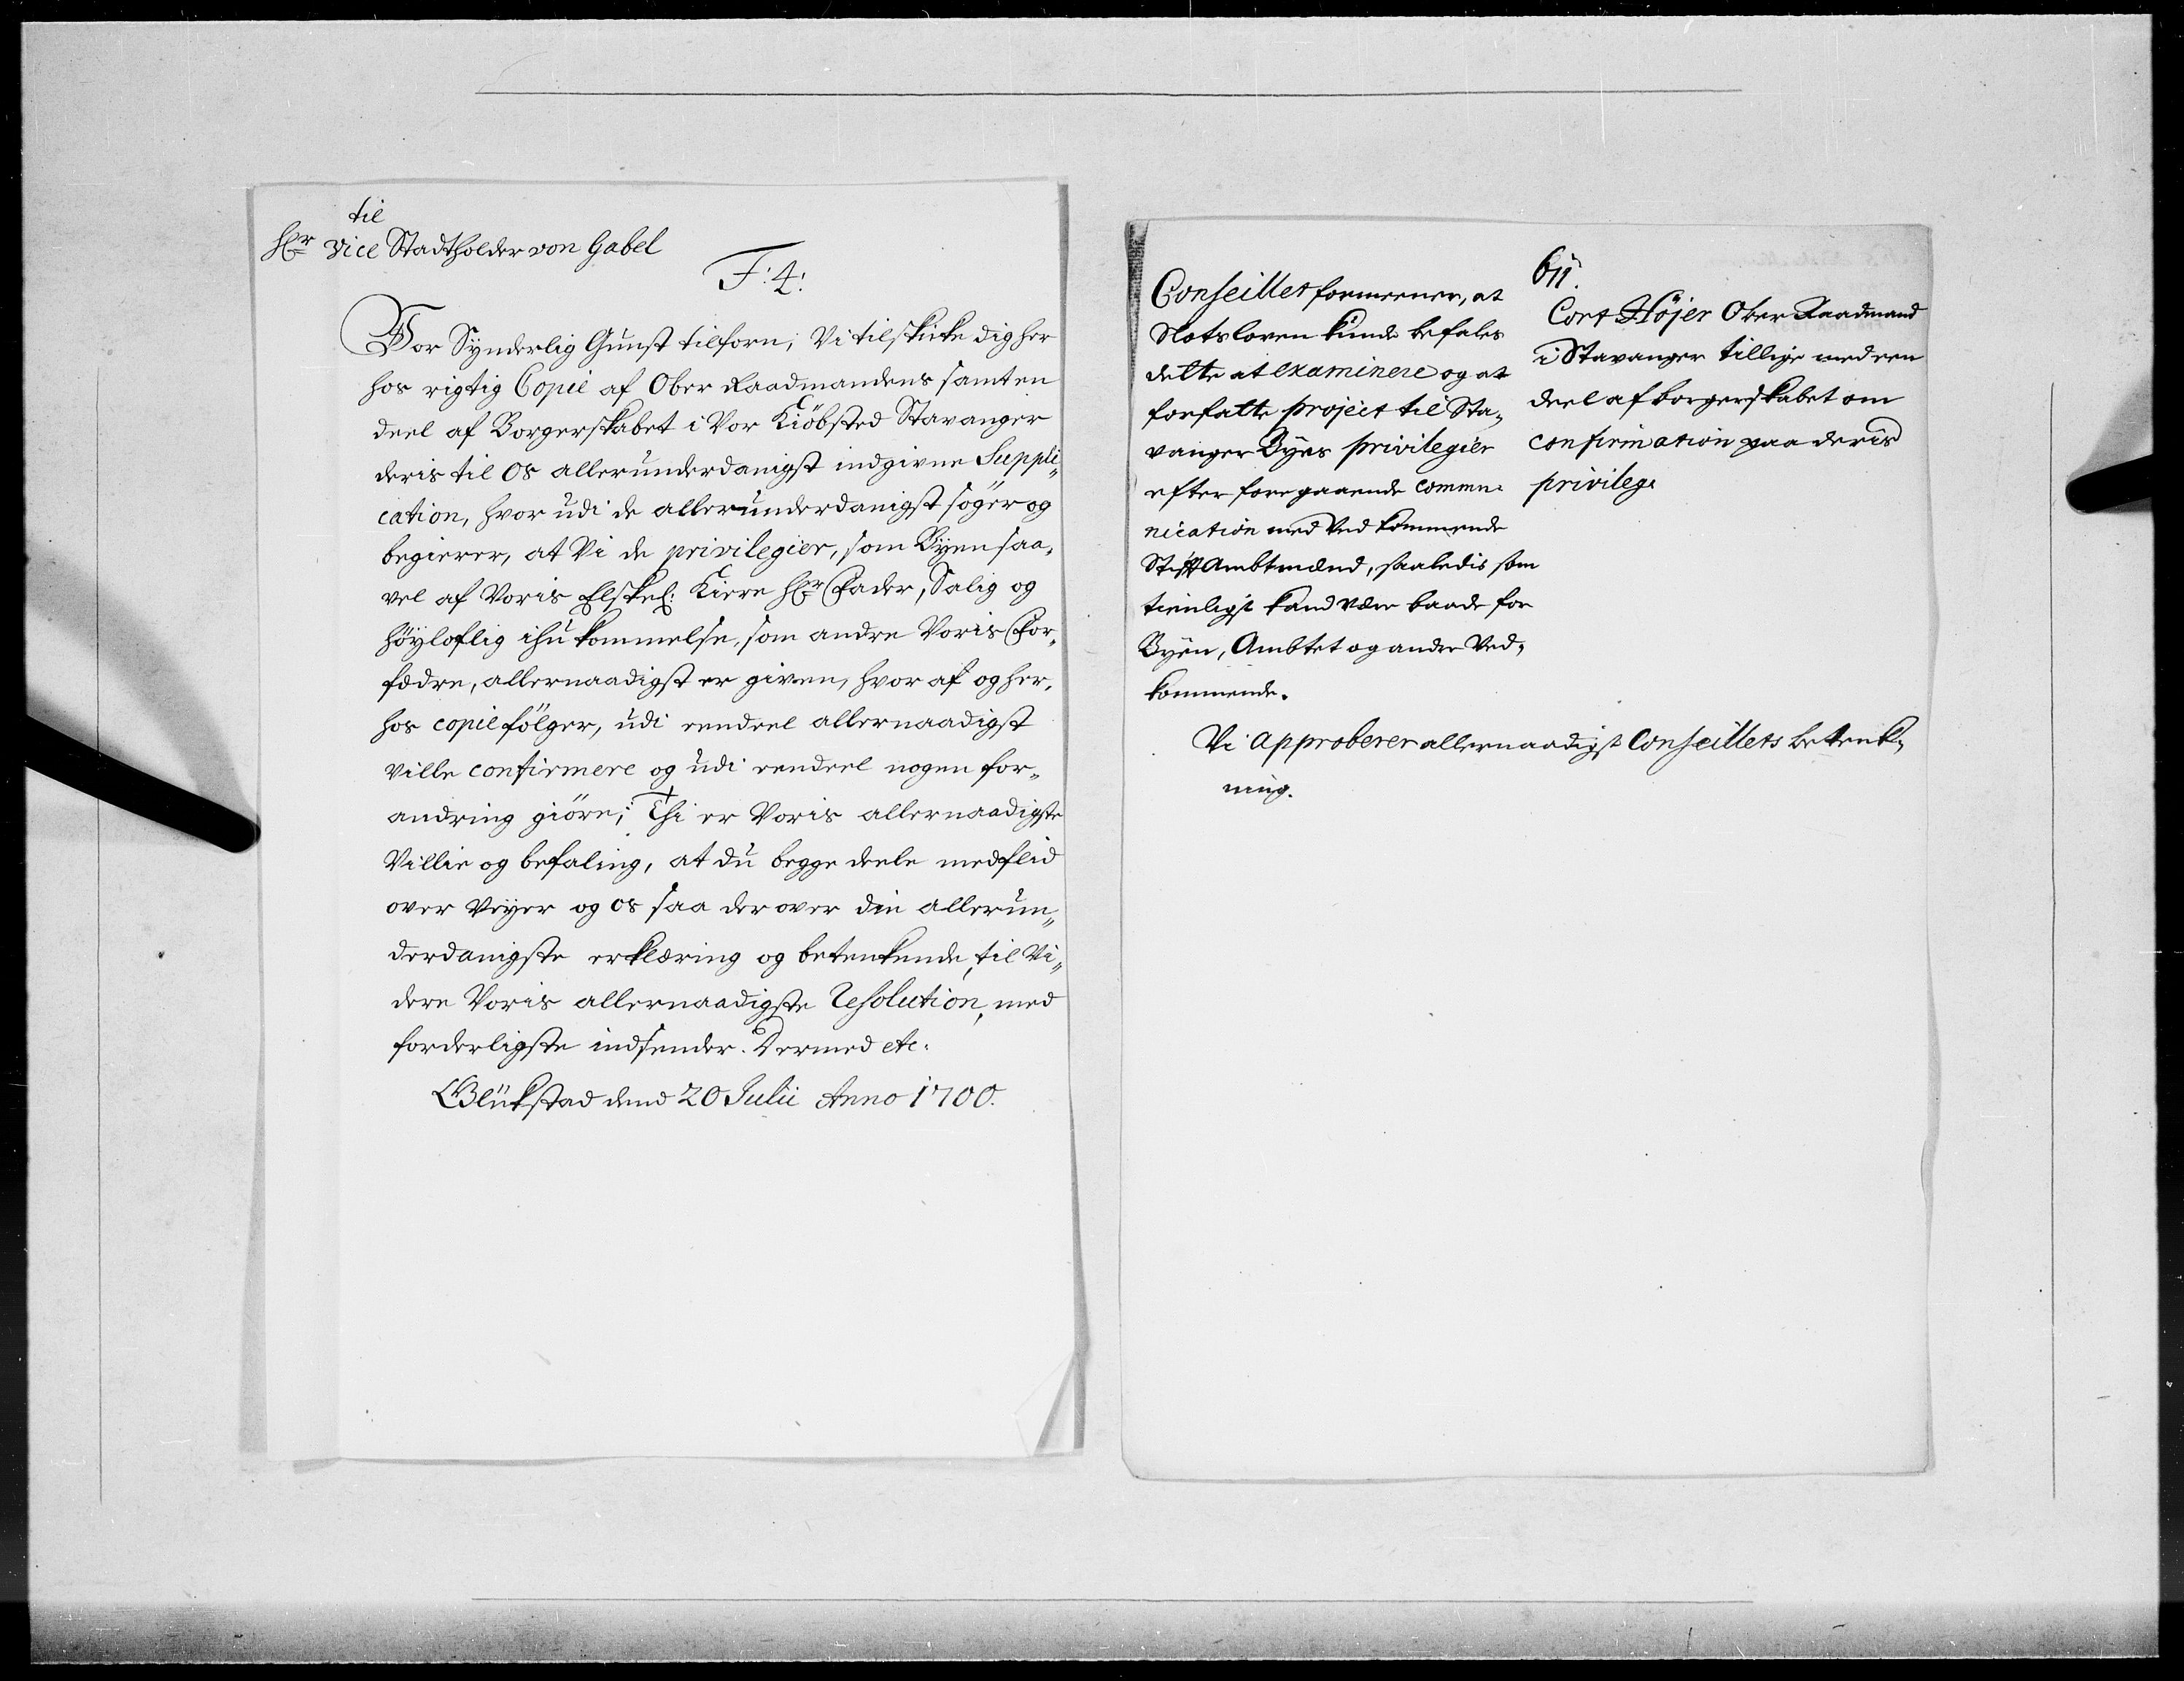 til
Hr Vice Stadtholder von Gabel
F: 4:
Vor Synderlig Gunst tilforn; Vi tilskicke dig her
hos rigtig Copie af Ober Raadmandens samt en
deel af Borgerskabet i Vor Kiöbsted Stavanger
deris til Os allerunderdanigst indgivne Suppli„
cation, hvor udi de allerunderdanigst söger og
begierer, at Vi de privilegier, som Byen saa„
vel af Voris Elskel: Kiere Hr Fader, Salig og
höyloflig ihukommelse, som andre Voris For„
fædre, allernaadigst er given, hvor af og her„
hos copie fölger, udi eendeel allernaadigst
ville confirmere og udi eendeel nogen for„
andring giöre; Thi er Voris allernaadigste
Villie og befaling, at du begge deele med flid
over Veyer og os saa der over din allerun„
derdanigste erklæring og betenkende, til Vi„
dere Voris allernaadigste Resolution, med
forderligste indsender. Dermed etc:
Glükstad dend 20 Julii Anno 1700.
Conseillet formeener, at
Slotsloven kunde befales
dette at examinere og at
forfatte project til Sta„
vanger Byes privilegier
efter foregaaende commu„
nication med Vedkommende
Stift Ambtmænd, saaledis som
tienligst kand være baade for
Byen, Ambtet og andre Ved„
kommende.
611.
Cort Höjer Ober Raadmand
i Stavanger tillige med een
deel af borgerskabet om
confirmation paa deris
privileg:
Vi approberer allernaadigst Conseillets betenk„
ning.